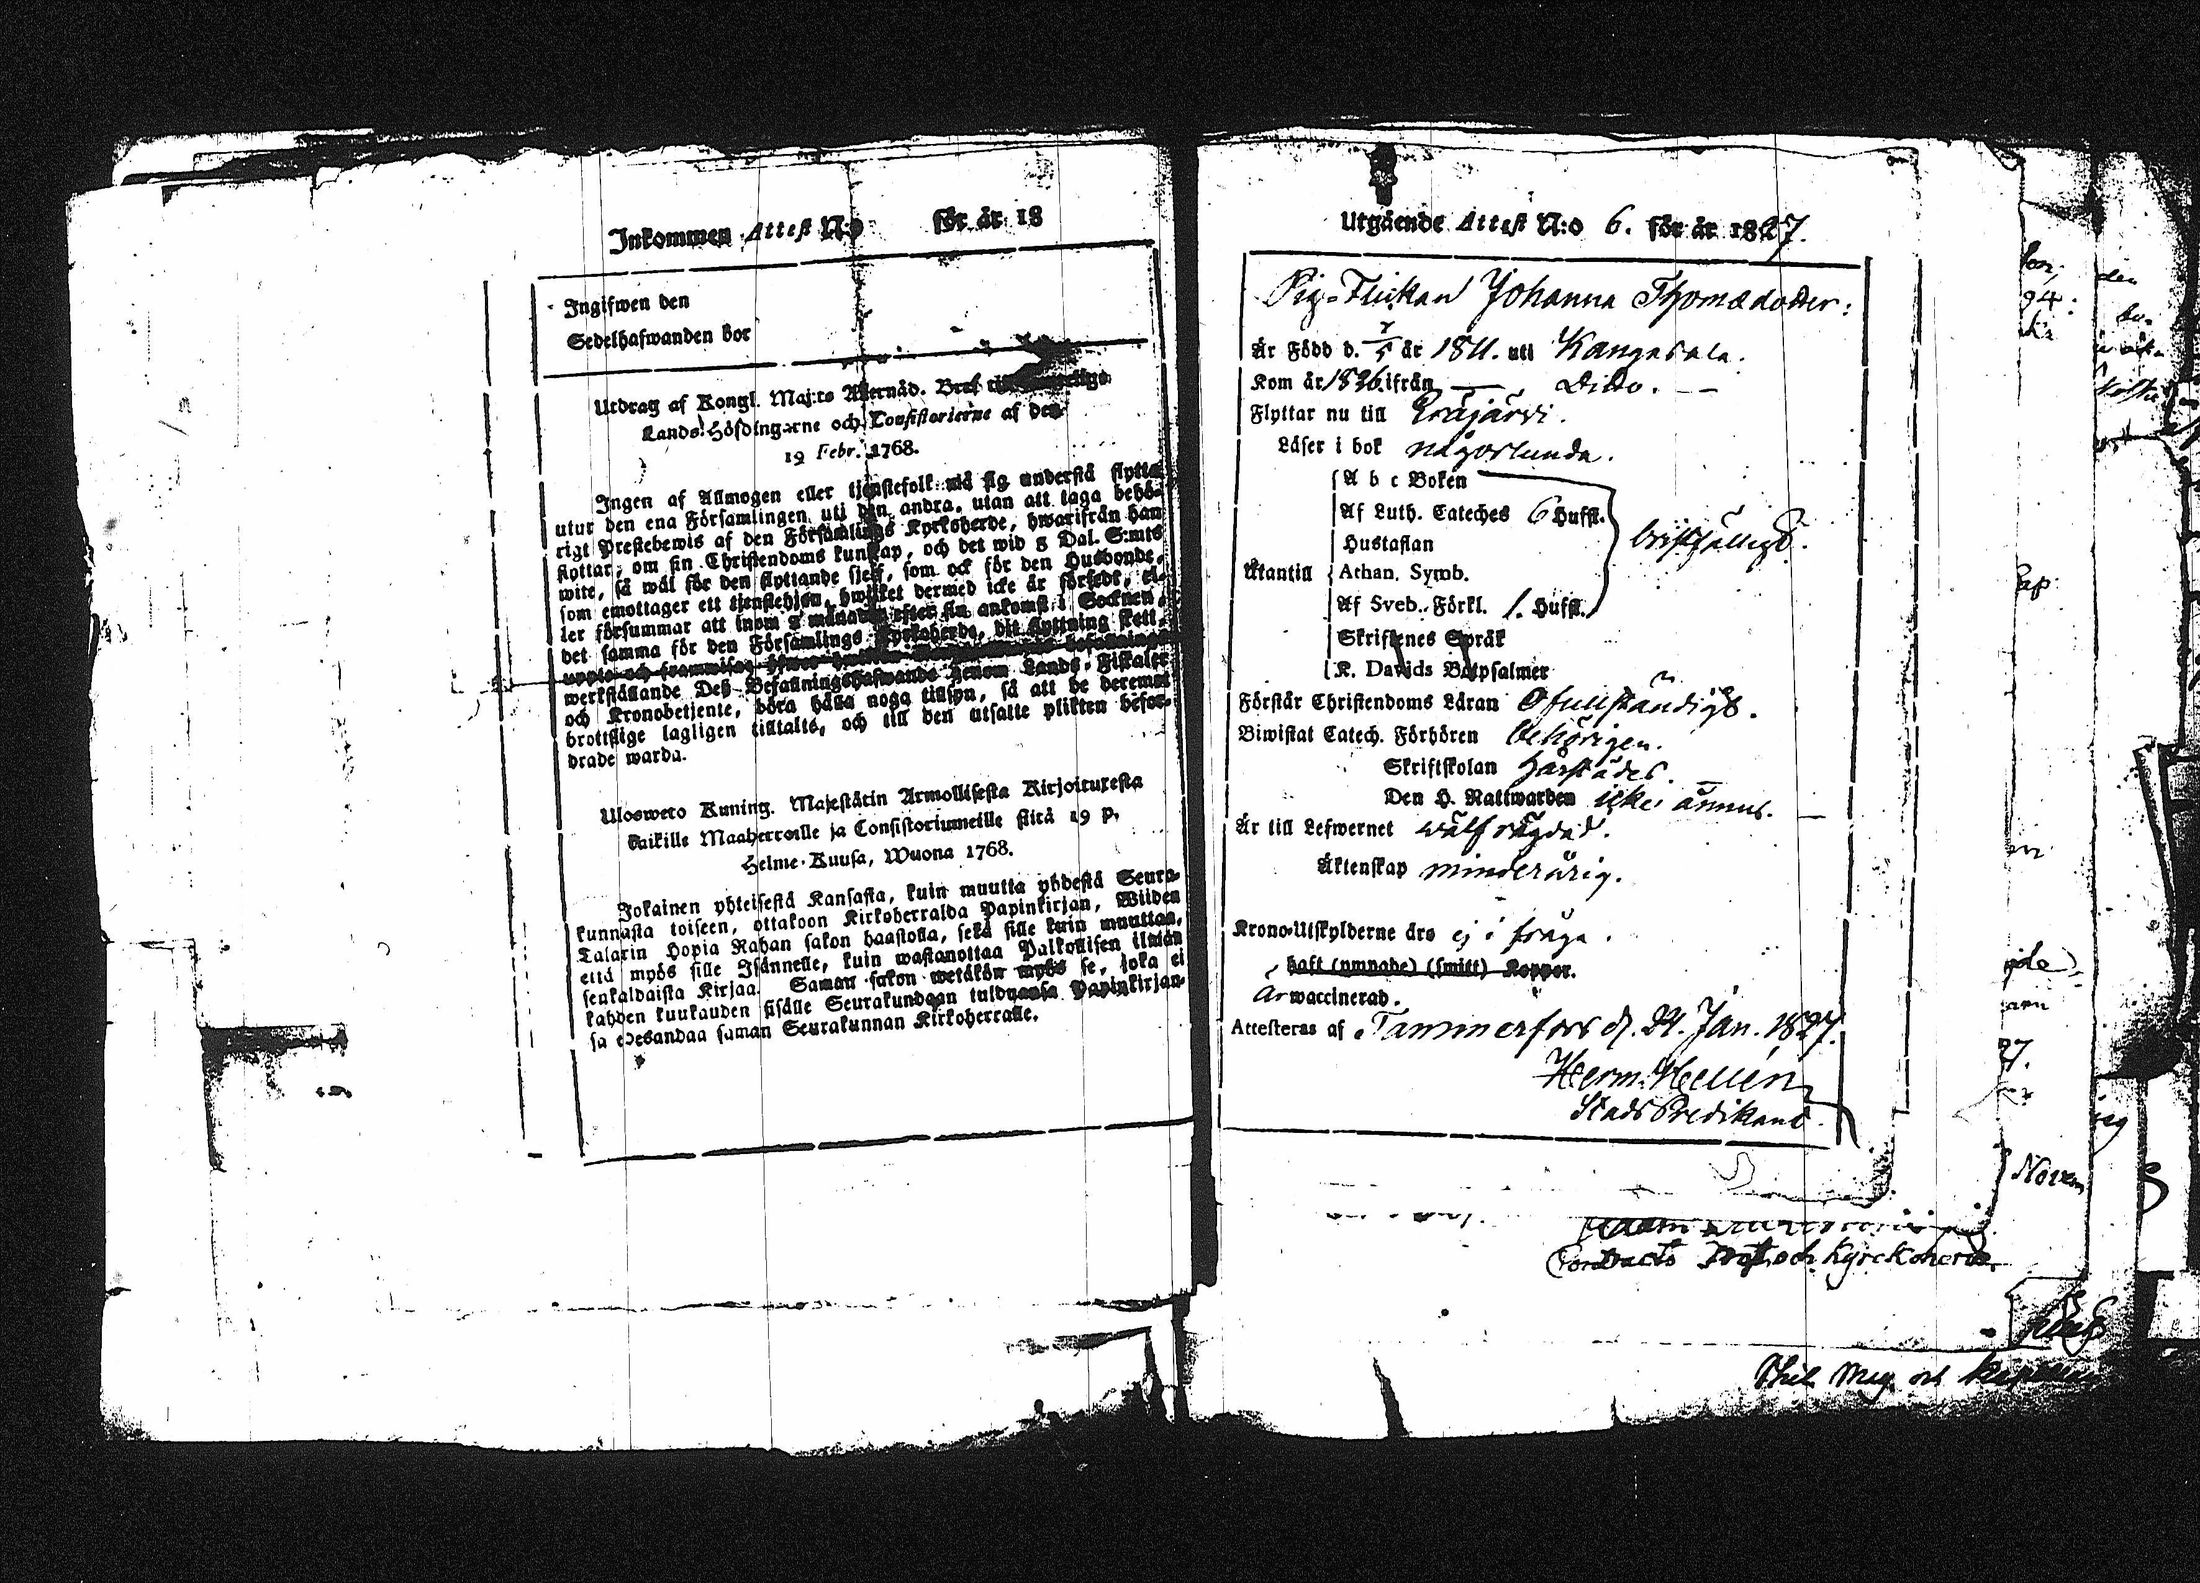 Inkommen Attest N:o för år 18
Ingifwen den
Sedelhafwanden bor
Utdrag af Kongl. Maj:ts Allernåd. Bref till
Lands-Höfdingarne och Consistorierne af den
19 Febr. 1768.
Ingen af Allmogen eller tjenstefolk må sig understå flytta
utur den ena Församlingen uti den andra, utan att taga behö-
rigt Prestebewis af den Församlings Kyrkoherde, hwarifrån han
flyttar, om sin Christendoms kunskap, och det wid 8 Dal. S:mts
wite, så wäl för den flyttande sjelf, som ock för den Husbonde,
som emottager ett tjenstehjon, hwilket dermed icke är försedt, el-
ler försummar att inom 2 månader efter sin ankomst i Socknen,
det samma för den Församlings Kyrkoherde, dit flyttning skett,
uppte och framwisa;
werkställande Deß Befallningshafwande genom Lands-Fiskaler
och Kronobetjente, böra hålla noga tillsyn, så att de deremot
brottslige lagligen tilltalte, och till den utsatte plikten befor-
drade warda.
Ulosweto Kuning. Majestätin Armollisesta Kirjoituxesta
kaikille Maaherroille ja Consistoriumeille siitä 19 p.
Helme-Kuusa, Wuona 1768.
Jokainen yhteisestä Kansasta, kuin muutta yhdestä Seura-
kunnasta toiseen, ottakoon Kirkoherralda Papinkirjan, Wiiden
Talarin Hopia Rahan sakon haastolla, sekä sille kuin muuttaa,
että myös sille Isännelle, kuin wastanottaa Palkollisen ilman
senkaldaista Kirjaa. Saman sakon wetäkön myös se, joka ei
kahden kuukauden sisälle Seurakundaan tulduansa Papinkirjan-
sa edesandaa saman Seurakunnan Kirkoherralle.
Utgående Attest N:o 6. för år 1827.
Pig-Flickan Johanna Thomædotter:
Är Född d. 7/5 år 1811. uti Kangasala.
Kom år 1826. ifrån — Dito. —
Flyttar nu till Eräjärvi.
Läser i bok någorlunda.
A b c Boken
Af Luth. Cateches 6 Hufst.
Hustaflan
bristfälligt.
Utantill Athan. Symb.
Af Sveb. Förkl. 1. Hufst.
Skriftenes Språk
K. Davids Botpsalmer
Förstår Christendoms Läran Ofullständigt.
Biwistat Catech. Förhören behörigen.
Skriftskolan härstädes.
Den H. Nattwarden icke ännu.
Är till Lefwernet wälfrägdad.
Äktenskap minderårig.
Krono-Utskylderne äro ej i fråga.
haft (ympade) (smitt) Koppor.
Är waccinerad.
Attesteras af Tammerfors d. 24. Jan. 1827.
Herm. Hellén
Stads Predikant.
Contracts Prost och Kyrckoherde
Phil. Mag. och
Novem